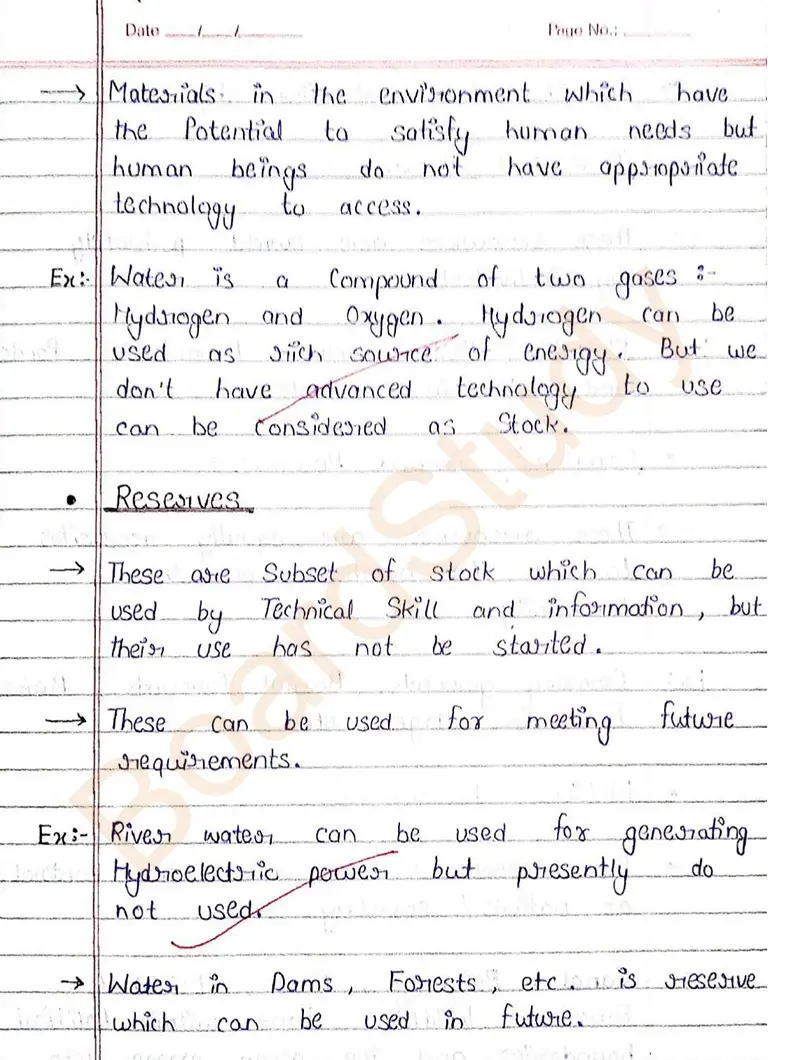 Date ___/___/______ Page No.: ______
→ Materials in the environment which have
the Potential to satisfy human needs but
human beings do not have appropriate
technology to access.
Ex:- Water is a Compound of two gases :-
Hydrogen and Oxygen. Hydrogen can be
used as rich source of energy. But we
don't have advanced technology to use
can be Considered as Stock.
• Reserves
→ These are Subset of stock which can be
used by Technical Skill and information, but
their use has not be started.
→ These can be used for meeting future
requirements.
Ex:- River water can be used for generating
Hydroelectric power but presently do
not used.
→ Water in Dams, Forests, etc. is reserve
which can be used in future.
BoardStudy